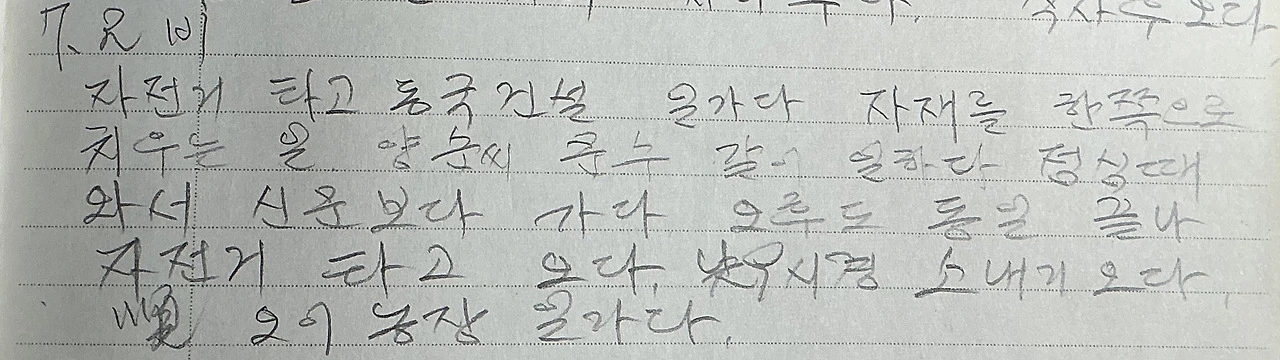 7. 요 비
자전거 타고 동국건설 일가다 자재를 한쪽으로
치우는 일. 양순씨 큰수 같이 일하다 점심때
와서 신문보다 가다 오후도 동일 끝나
자전거 타고 오다. 낮 시경 소내기 오다.
오이 농장 일가다.